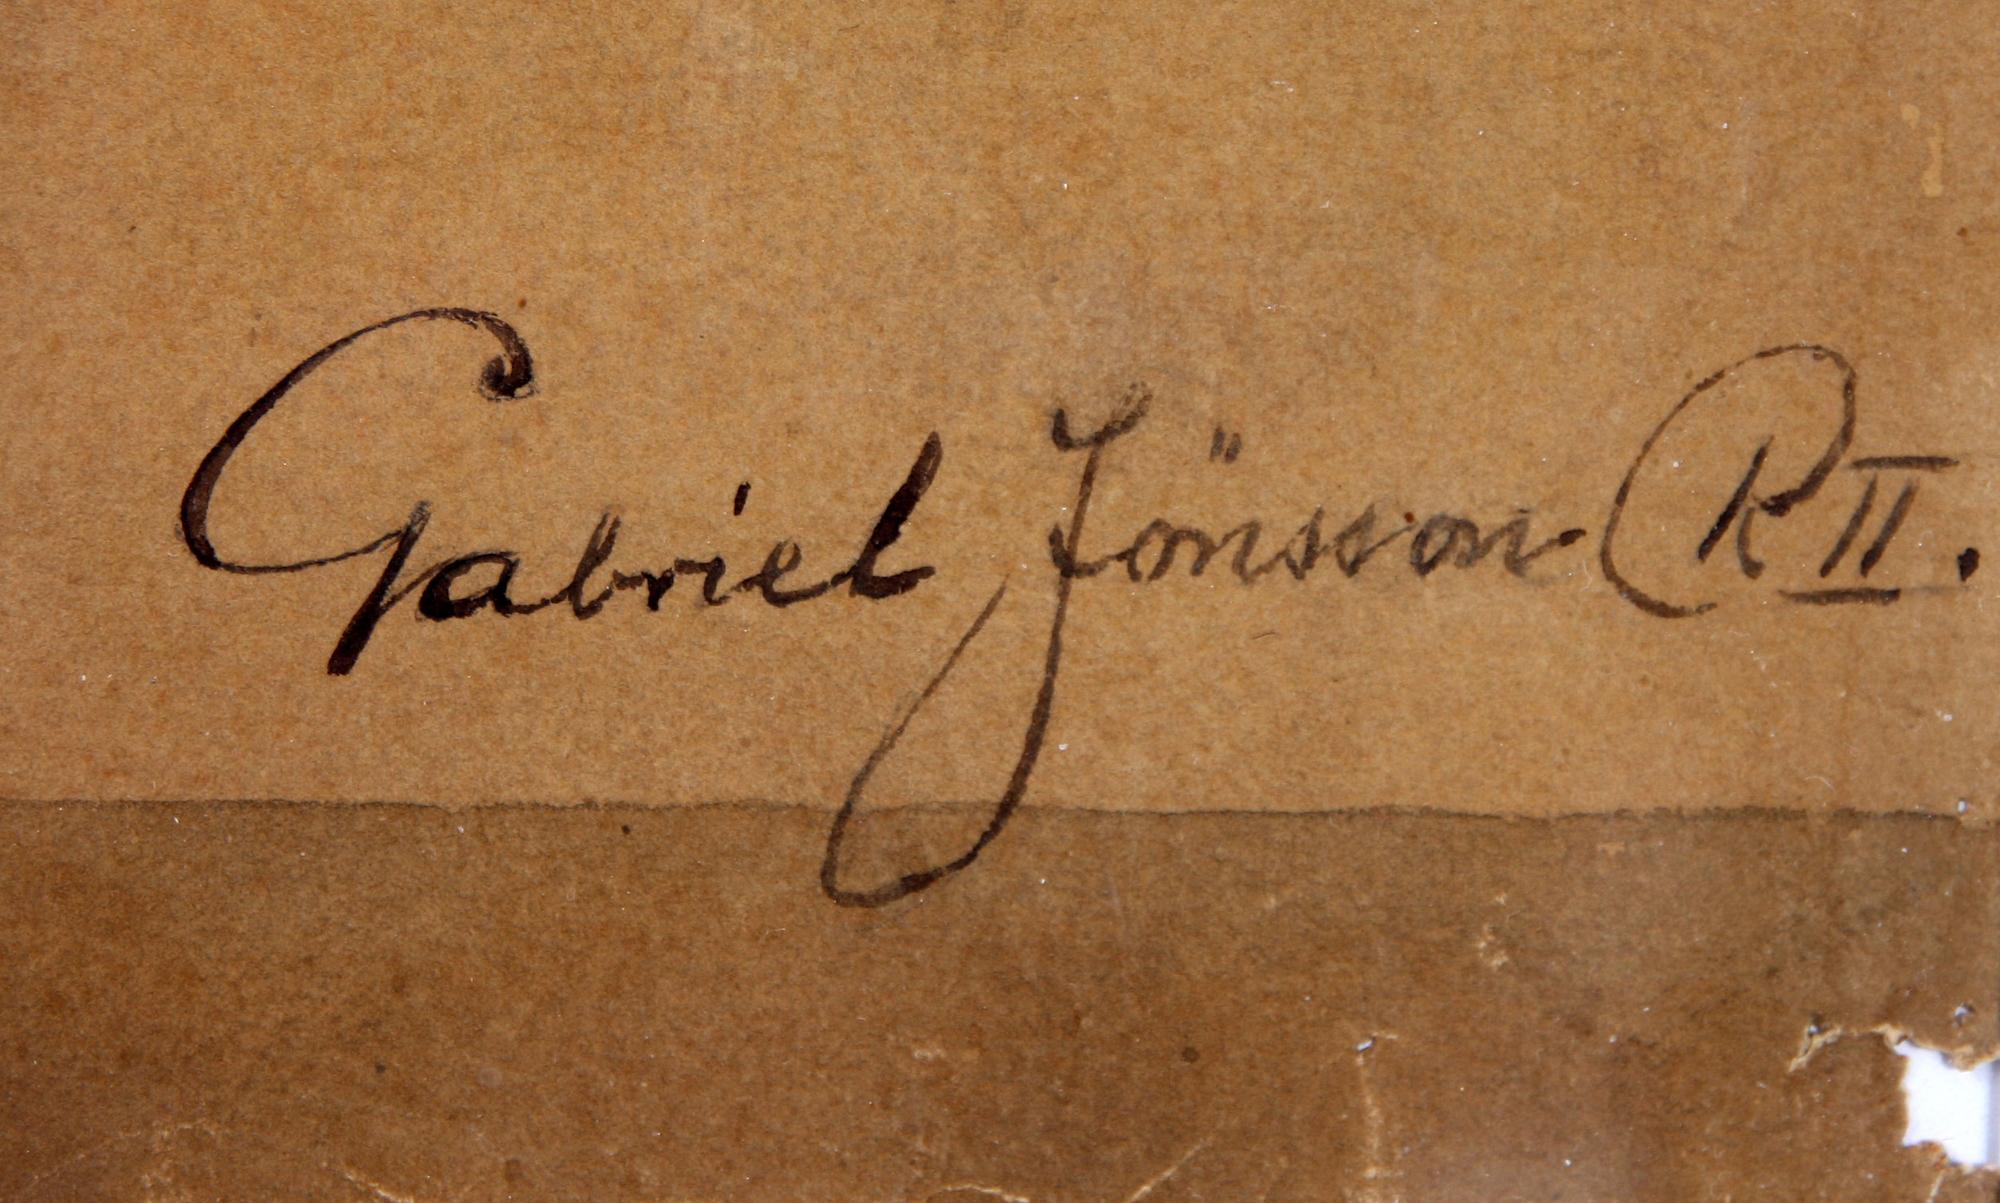 Gabriel Jönsson R II.